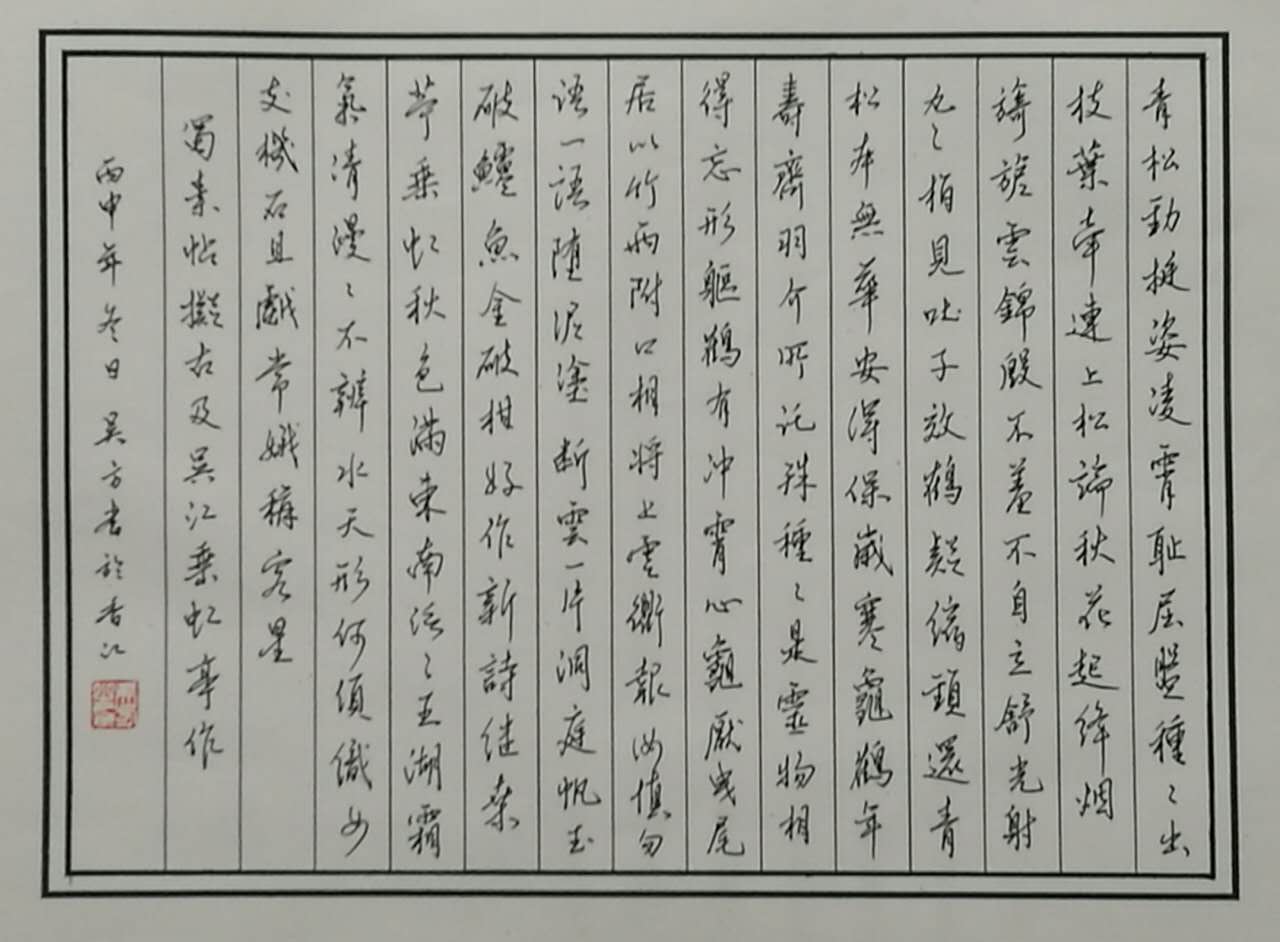 青松勁挺姿凌霄恥屈盤種〻出
枝葉牽連上松端秋花起絳烟
旖旎雲錦殷不羞不自立舒光射
丸〻柏見吐子效鶴疑縮頸還青
松本無華安得保歲寒龜鶴年
壽齊羽介所託殊種〻是靈物相
得忘形軀鶴有沖霄心龜厭曳尾
居以竹兩附口相將上雲衢報汝慎勿
語一語堕泥塗斷雲一片洞庭帆玉
破鱸魚金破柑好作新詩继桑
苧垂虹秋色滿東南泛〻五湖霜
氣清漫〻不辨水天形何須織女
支機石且戲常娥稱客星
蜀素帖擬古及吳江垂虹亭作
丙申年冬日吳方書於香江